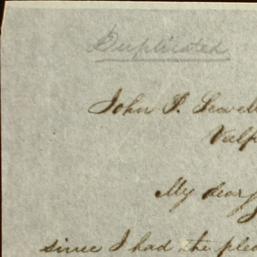 Duplicated
John P.
Valp
My dear
since I had the plea